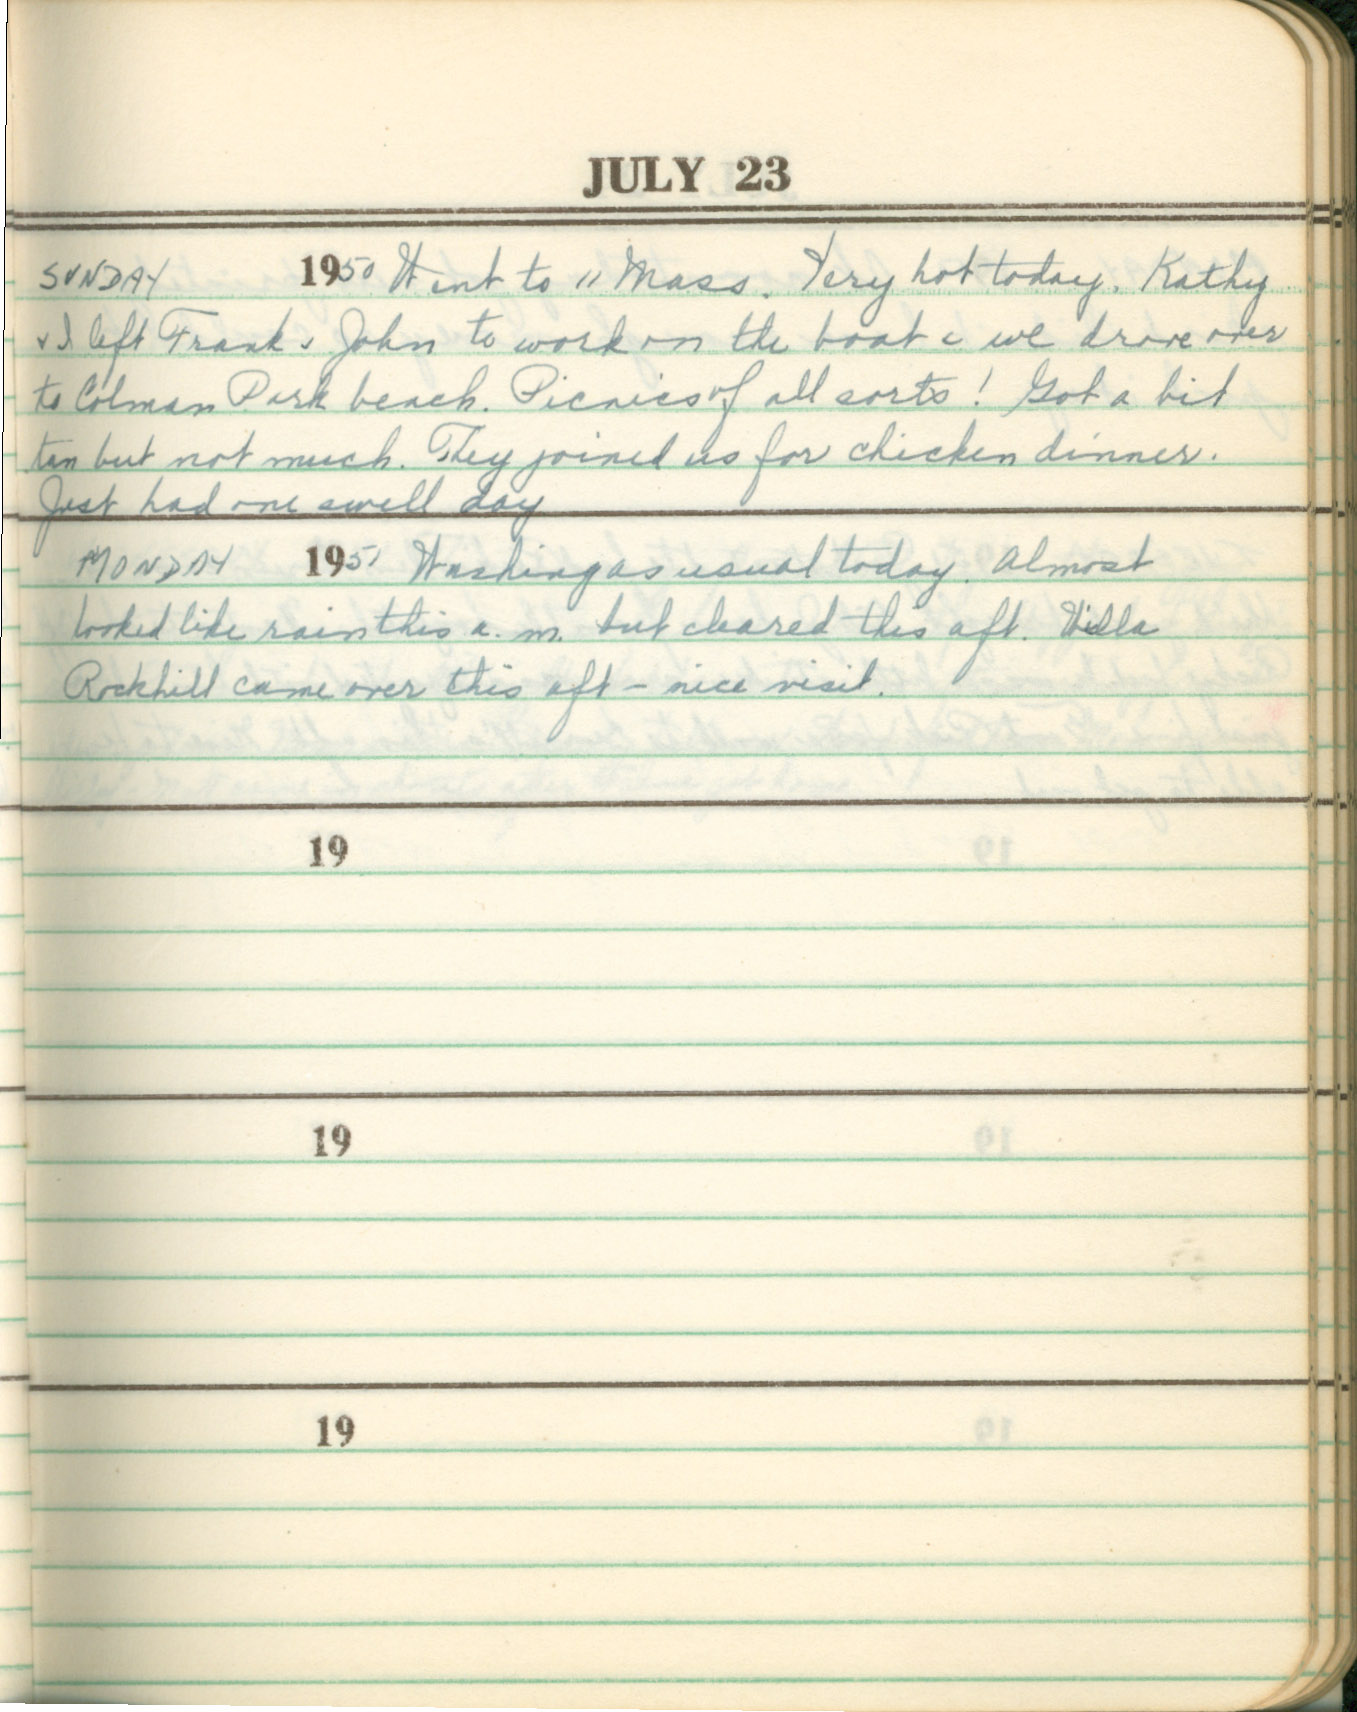 JULY 23
SUNDAY 1950 Went to 11 Mass. Very hot today. Kathy
& I left Frank & John to work on the boat & we drove over
to Colman Park beach. Picnics of all sorts! Got a bit
tan but not much. They joined us for chicken dinner.
Just had one swell day
MONDAY 1951 Washing as usual today. Almost
looked like rain this a.m. but cleared this aft. Willa
Rockhill came over this aft - nice visit.
19
19
19